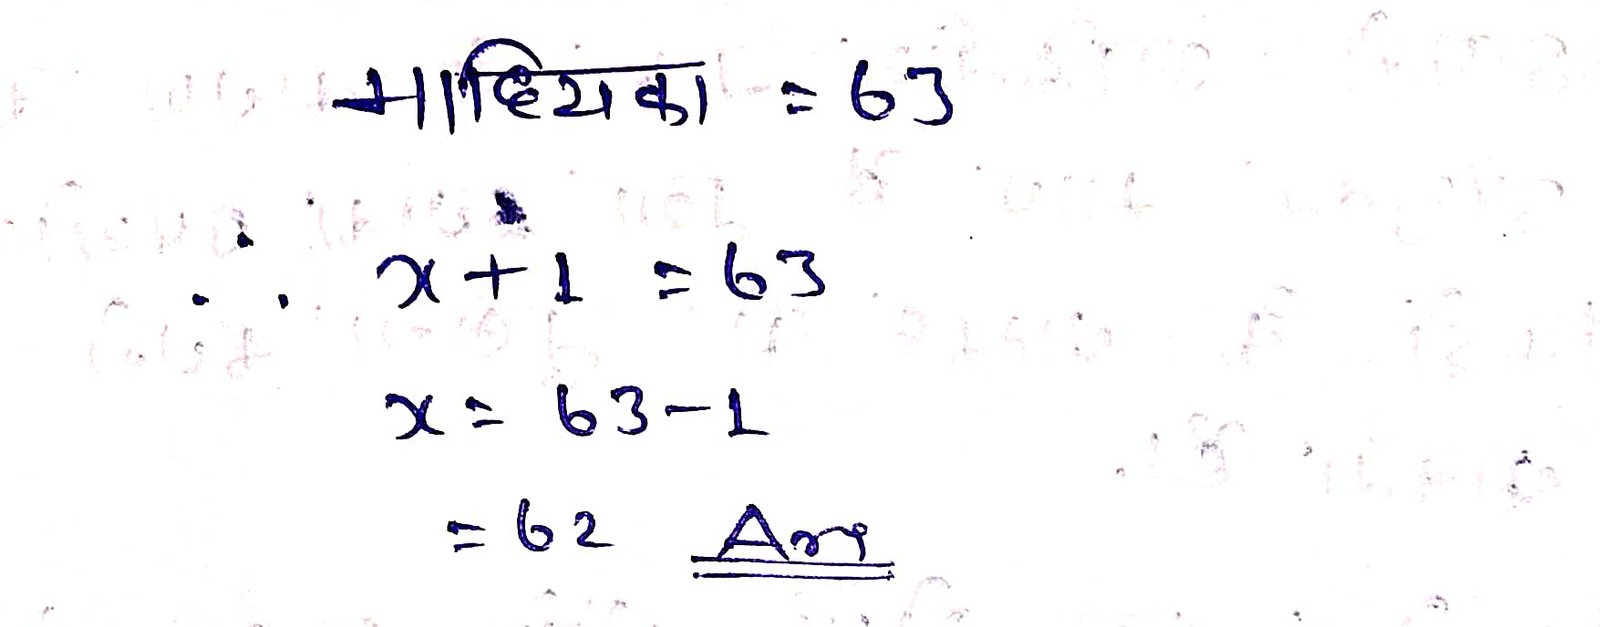 माध्यिका = 63
∴ x + 1 = 63
x = 63 - 1
= 62 Ans